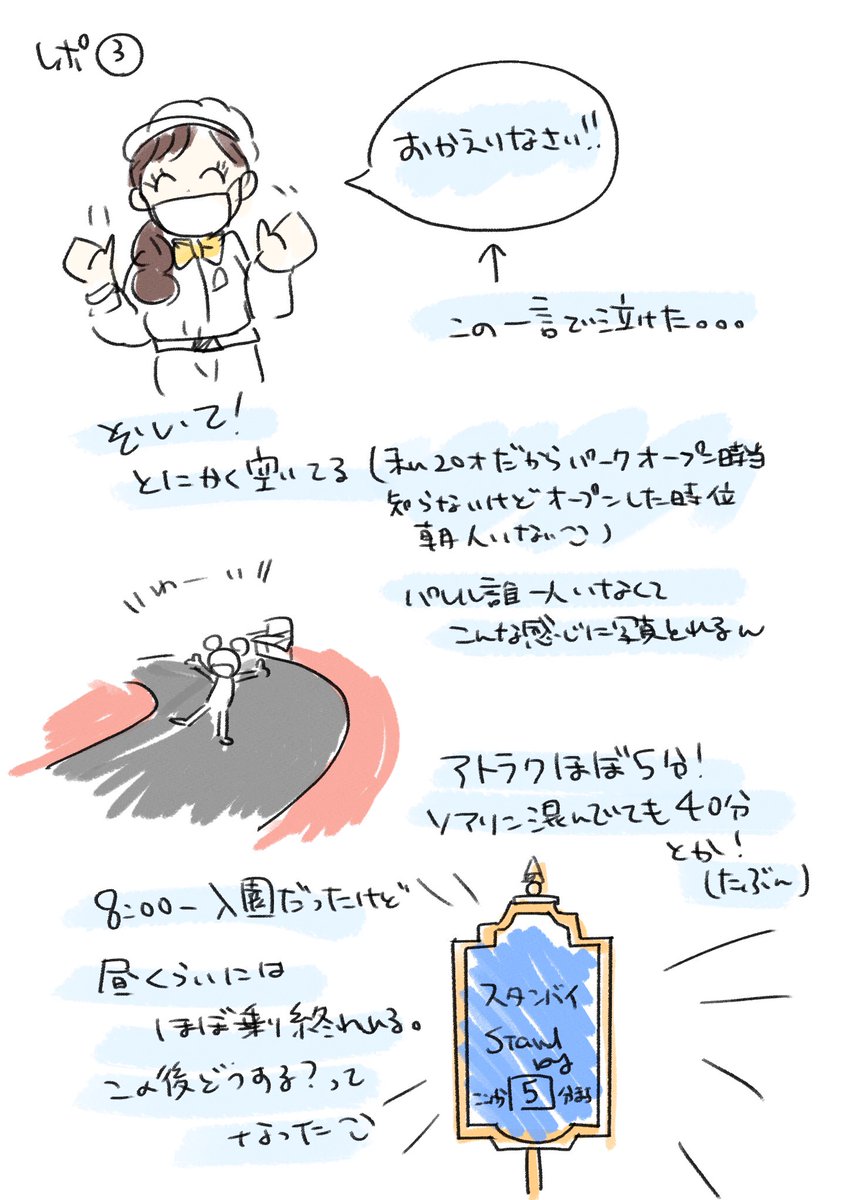 レポ③
おかえりなさい!!
この一言で泣けた。。。
そいて!
とにかく空いてる(私20才だからパークオープン時当
知らないけどオープンした時位
朝人いない
わー
パレル誰一人いなくて
こんな感じに写真とれるん
アトラクほぼ5分!
ソアリン混んでても40分
とか!
(たぶん)
8:00~入園だったけど
昼くらいには
ほぼ乗り終れいる。
この後どうする?って
なった
スタンバイ
Stand
by
ここから 5 分待ち